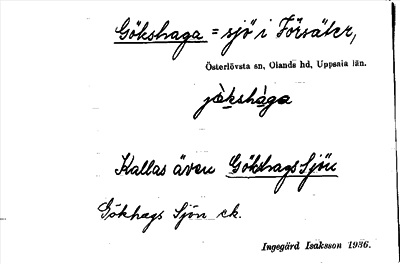 Gökshaga = sjö i Försäter,
Österlövsta sn, Olands hd, Uppsala län.
jökshàga
Kallas även GökhagsSjön
Gökhags Sjön ek.
Ingegärd Isaksson 1936.